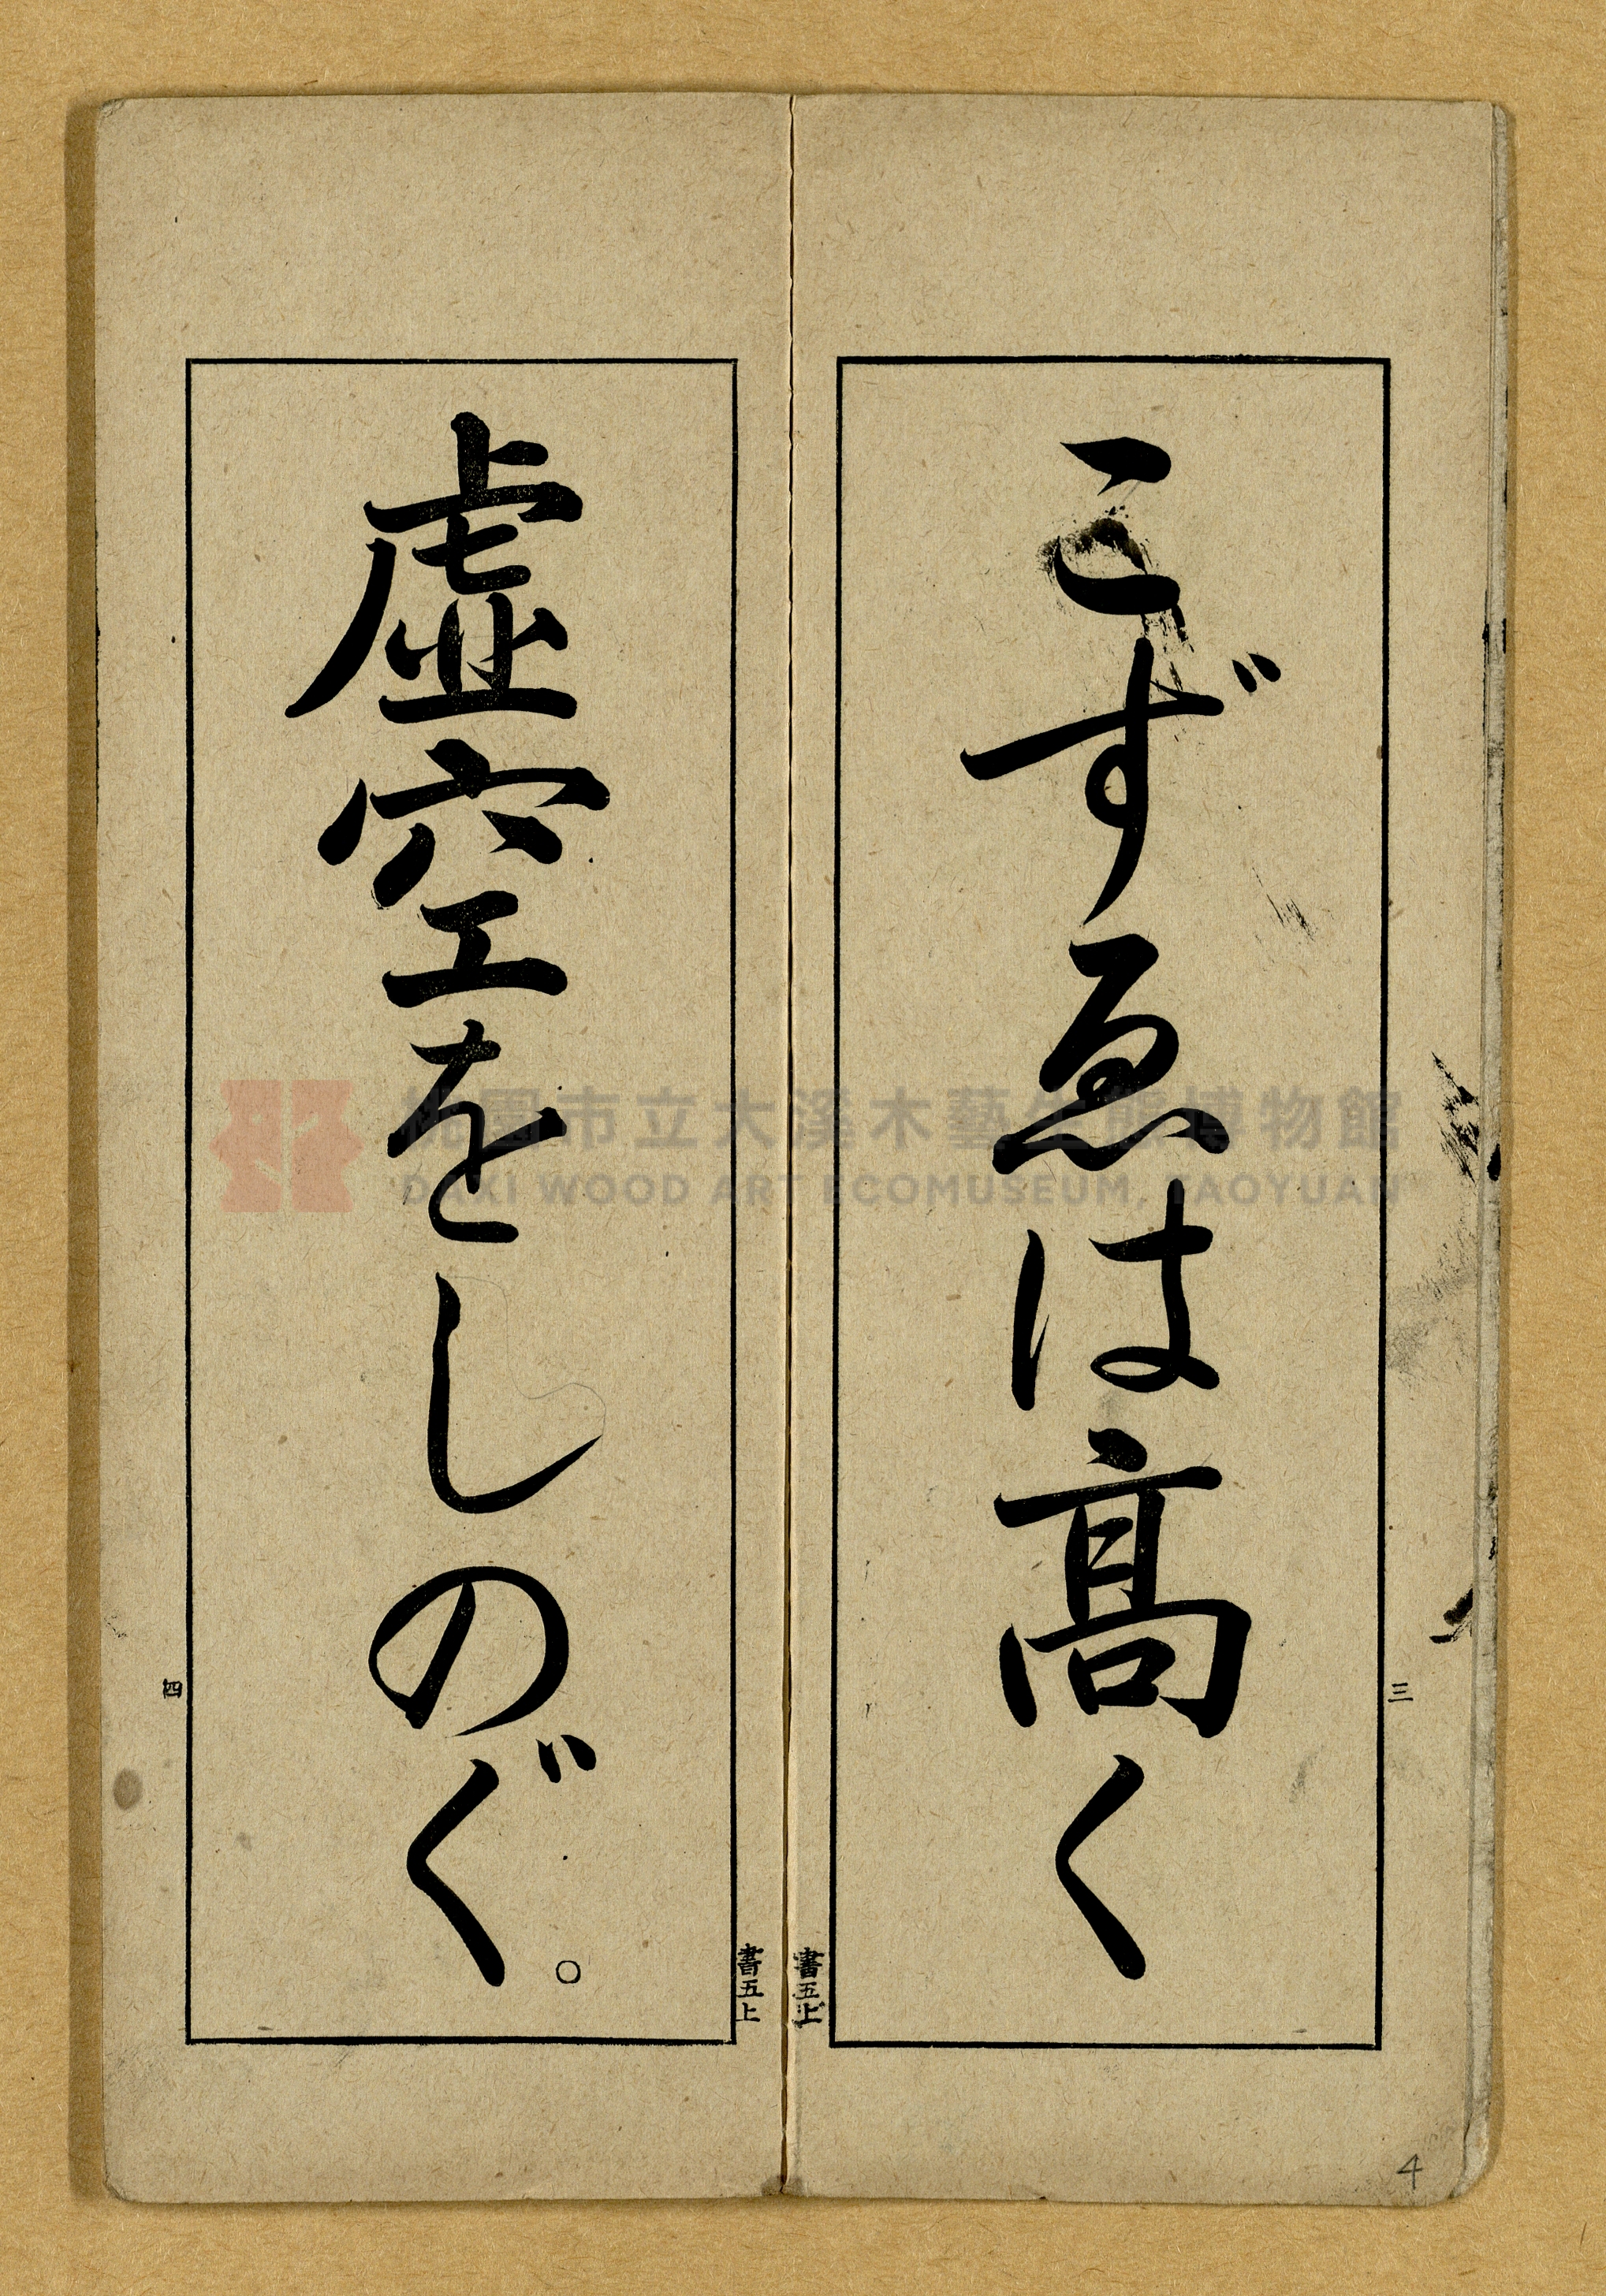 こずゑは髙く
三
書五上
虚空をしのぐ。
四
書五上
4
桃園市立大溪木藝生態博物館
DAXI WOOD ART ECOMUSEUM, TAOYUAN